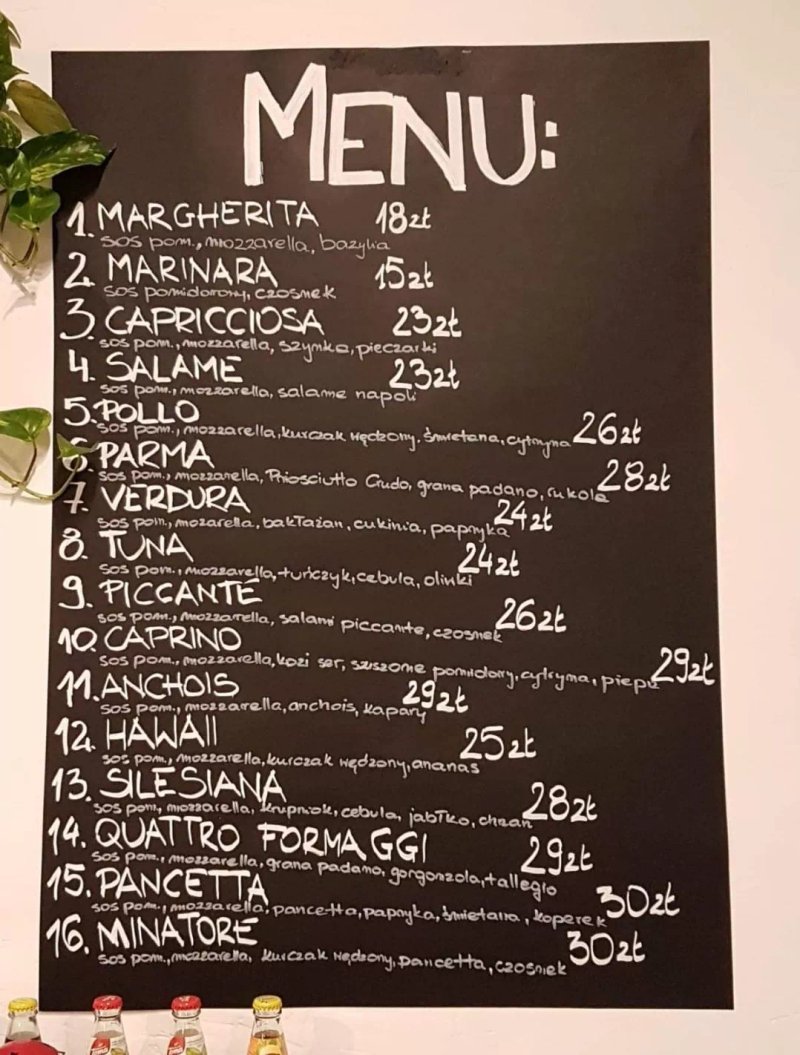 MENU:
1. MARGHERITA 18zł
sos pom., mozzarella, bazylia
2. MARINARA 15zł
sos pomidorowy, czosnek
3. CAPRICCIOSA 23zł
sos pom., mozzarella, szynka, pieczarki
4. SALAME 23zł
sos pom., mozzarella, salame napoli
5. POLLO
sos pom., mozzarella, kurczak wędzony, śmietana, cytryna 26zł
6. PARMA
sos pom., mozzarella, Priosciutto Crudo, grana padano, rukola 28zł
7. VERDURA
sos pom., mozarella, bakłażan, cukinia, papryka 24zł
8. TUNA
sos pom., mozzarella, tuńczyk, cebula, oliwki 24zł
9. PICCANTE
sos pom., mozzarella, salami piccante, czosnek 26zł
10. CAPRINO
sos pom., mozzarella, kozi ser, suszone pomidory, cytryna, pieprz 29zł
11. ANCHOIS 29zł
sos pom., mozzarella, anchois, kapary
12. HAWAII 25zł
sos pom., mozzarella, kurczak wędzony, ananas
13. SILESIANA 28zł
sos pom, mozzarella, krupniok, cebula, jabłko, chrzan
14. QUATTRO FORMAGGI 29zł
sos pom., mozzarella, grana padano, gorgonzola, tallegio
15. PANCETTA
sos pom., mozzarella, pancetta, papryka, śmietana, koperek 30zł
16. MINATORE 30zł
sos pom., mozzarella, kurczak wędzony, pancetta, czosnek